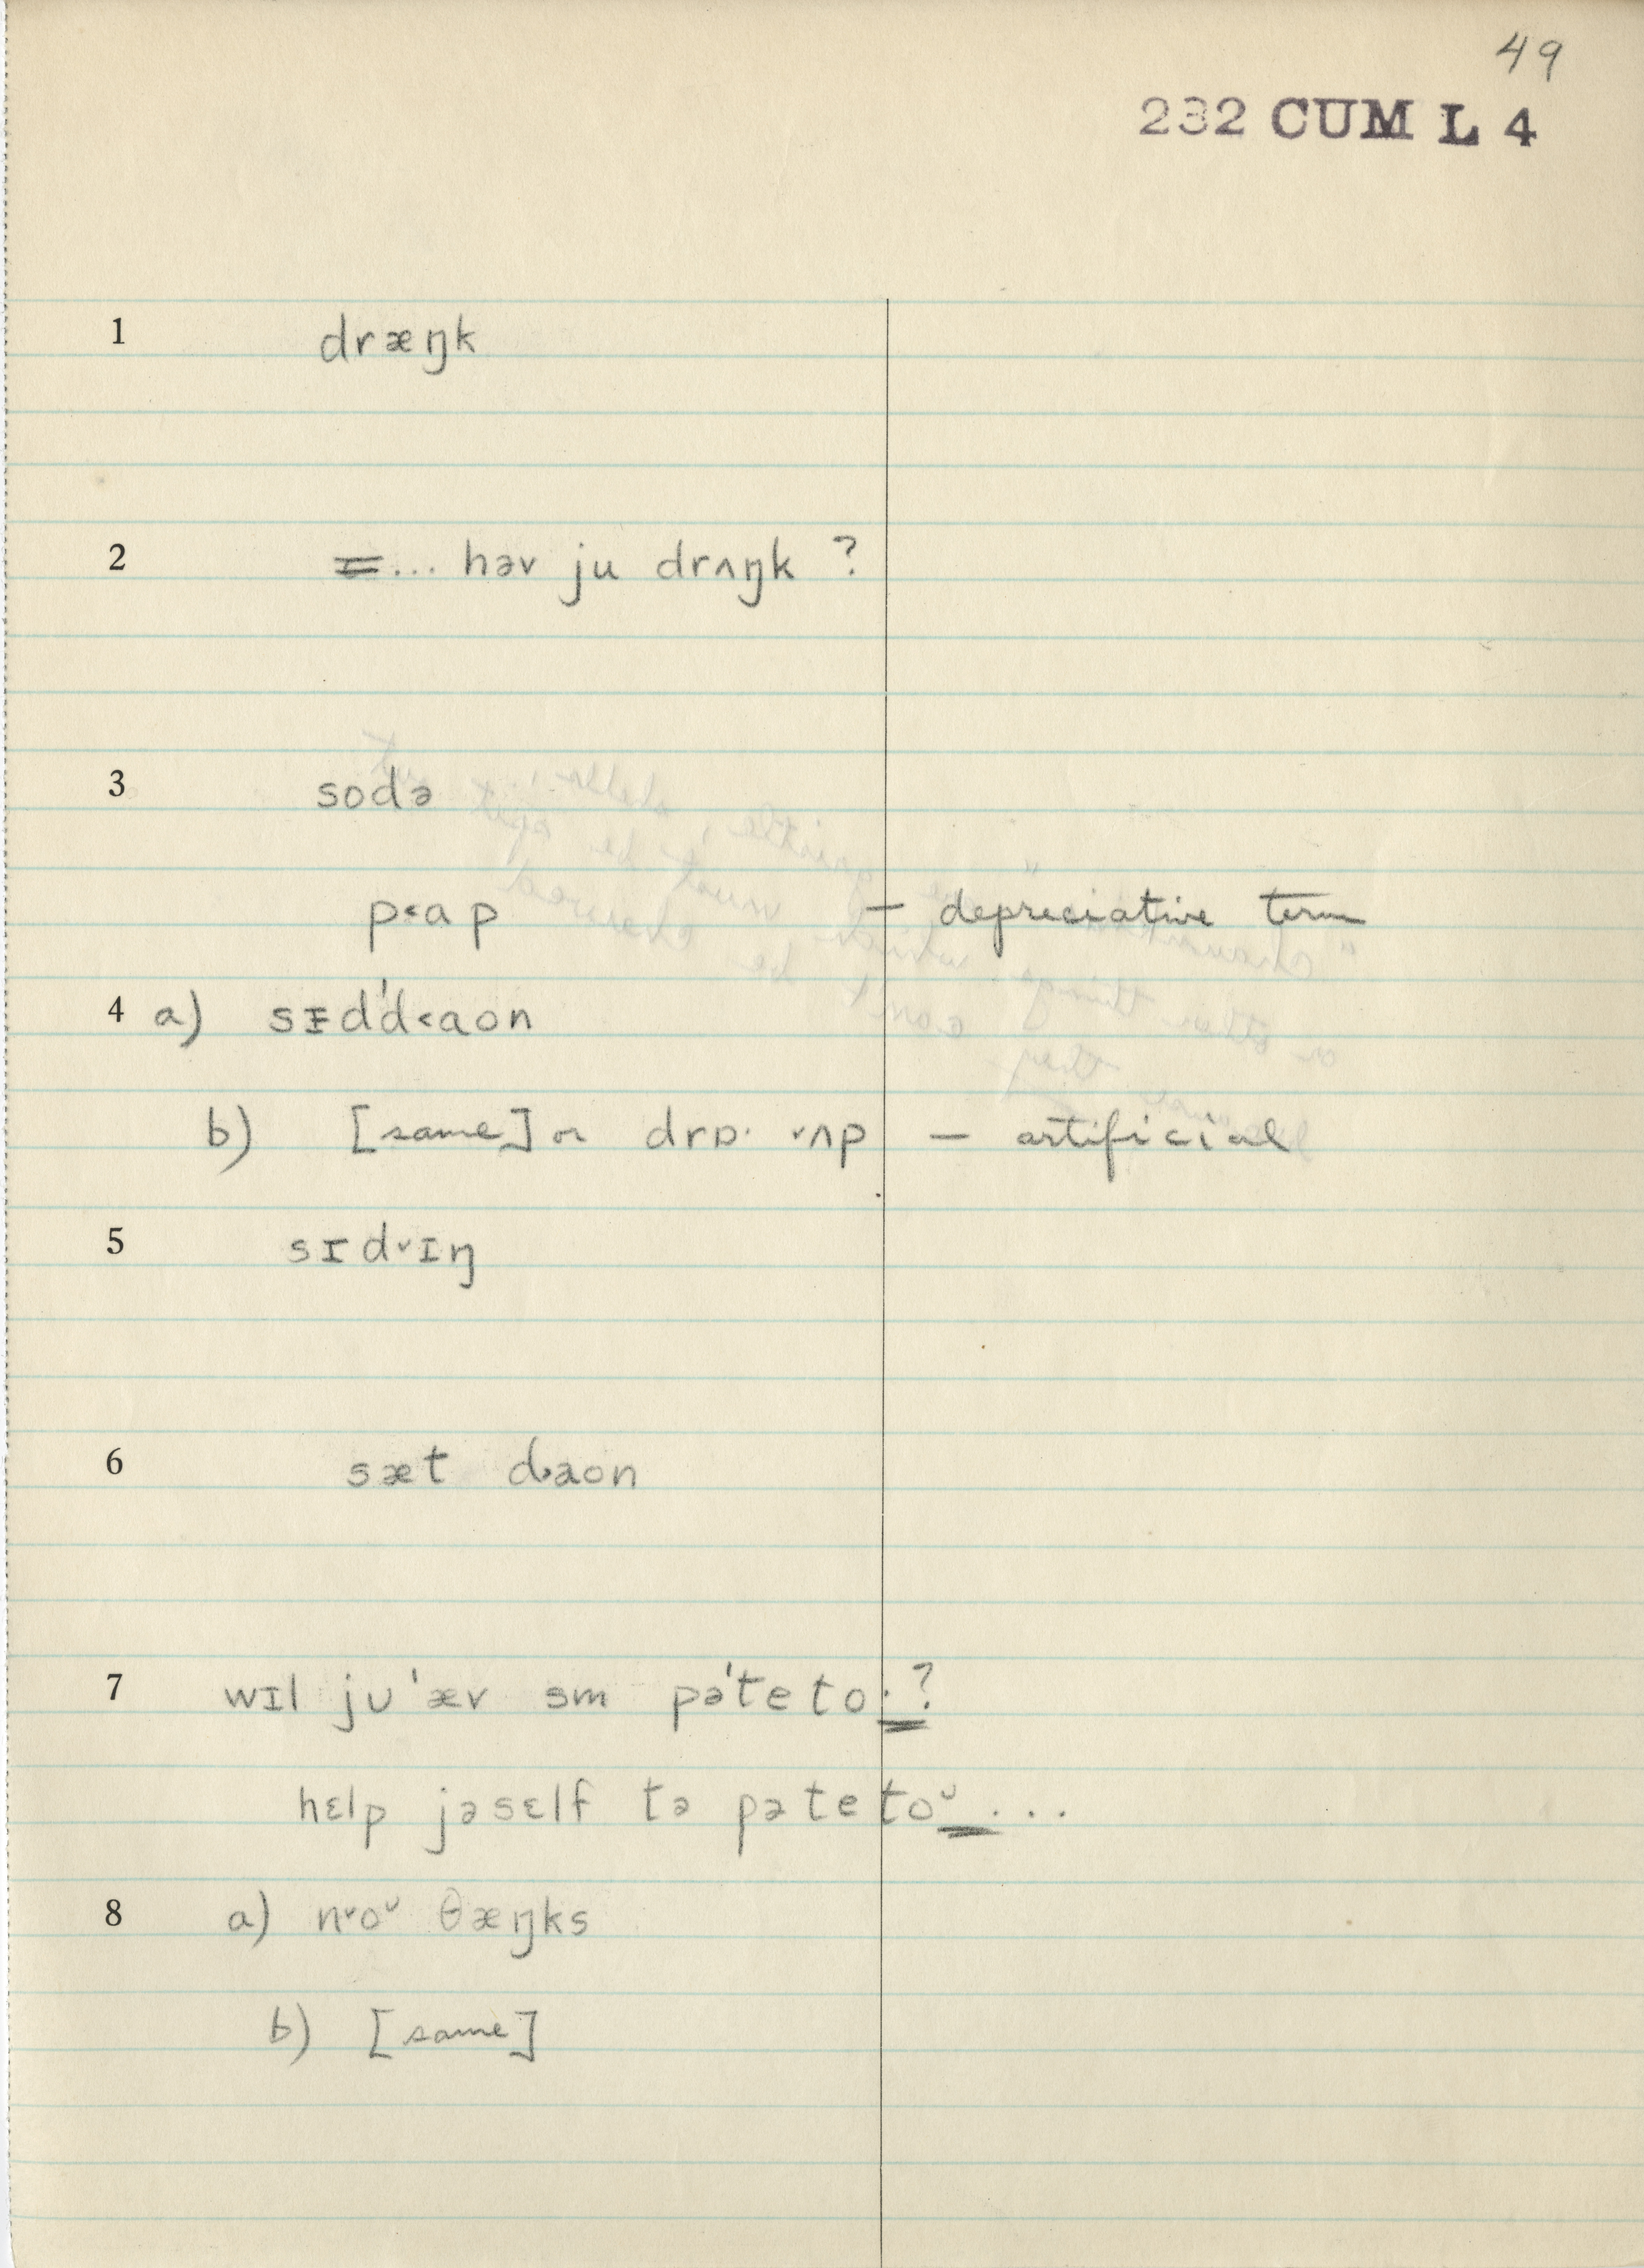 49
232 CUM L 4
1 dræŋk
2 =... həv ju drʌŋk ?
3 sodə
p<ɑp – depreciative term
4 a) sɪd'd<aon
b) [same] or drɒ· ˅ʌp – artificial
5 sɪd˅ɪŋ
6 sæt d˃aon
7 wɪl ju 'ær sm pə'teto·?
hɛlp jəsɛlf tə pəteto˘...
8 a) n˅o˘ θæŋks
b) [same]